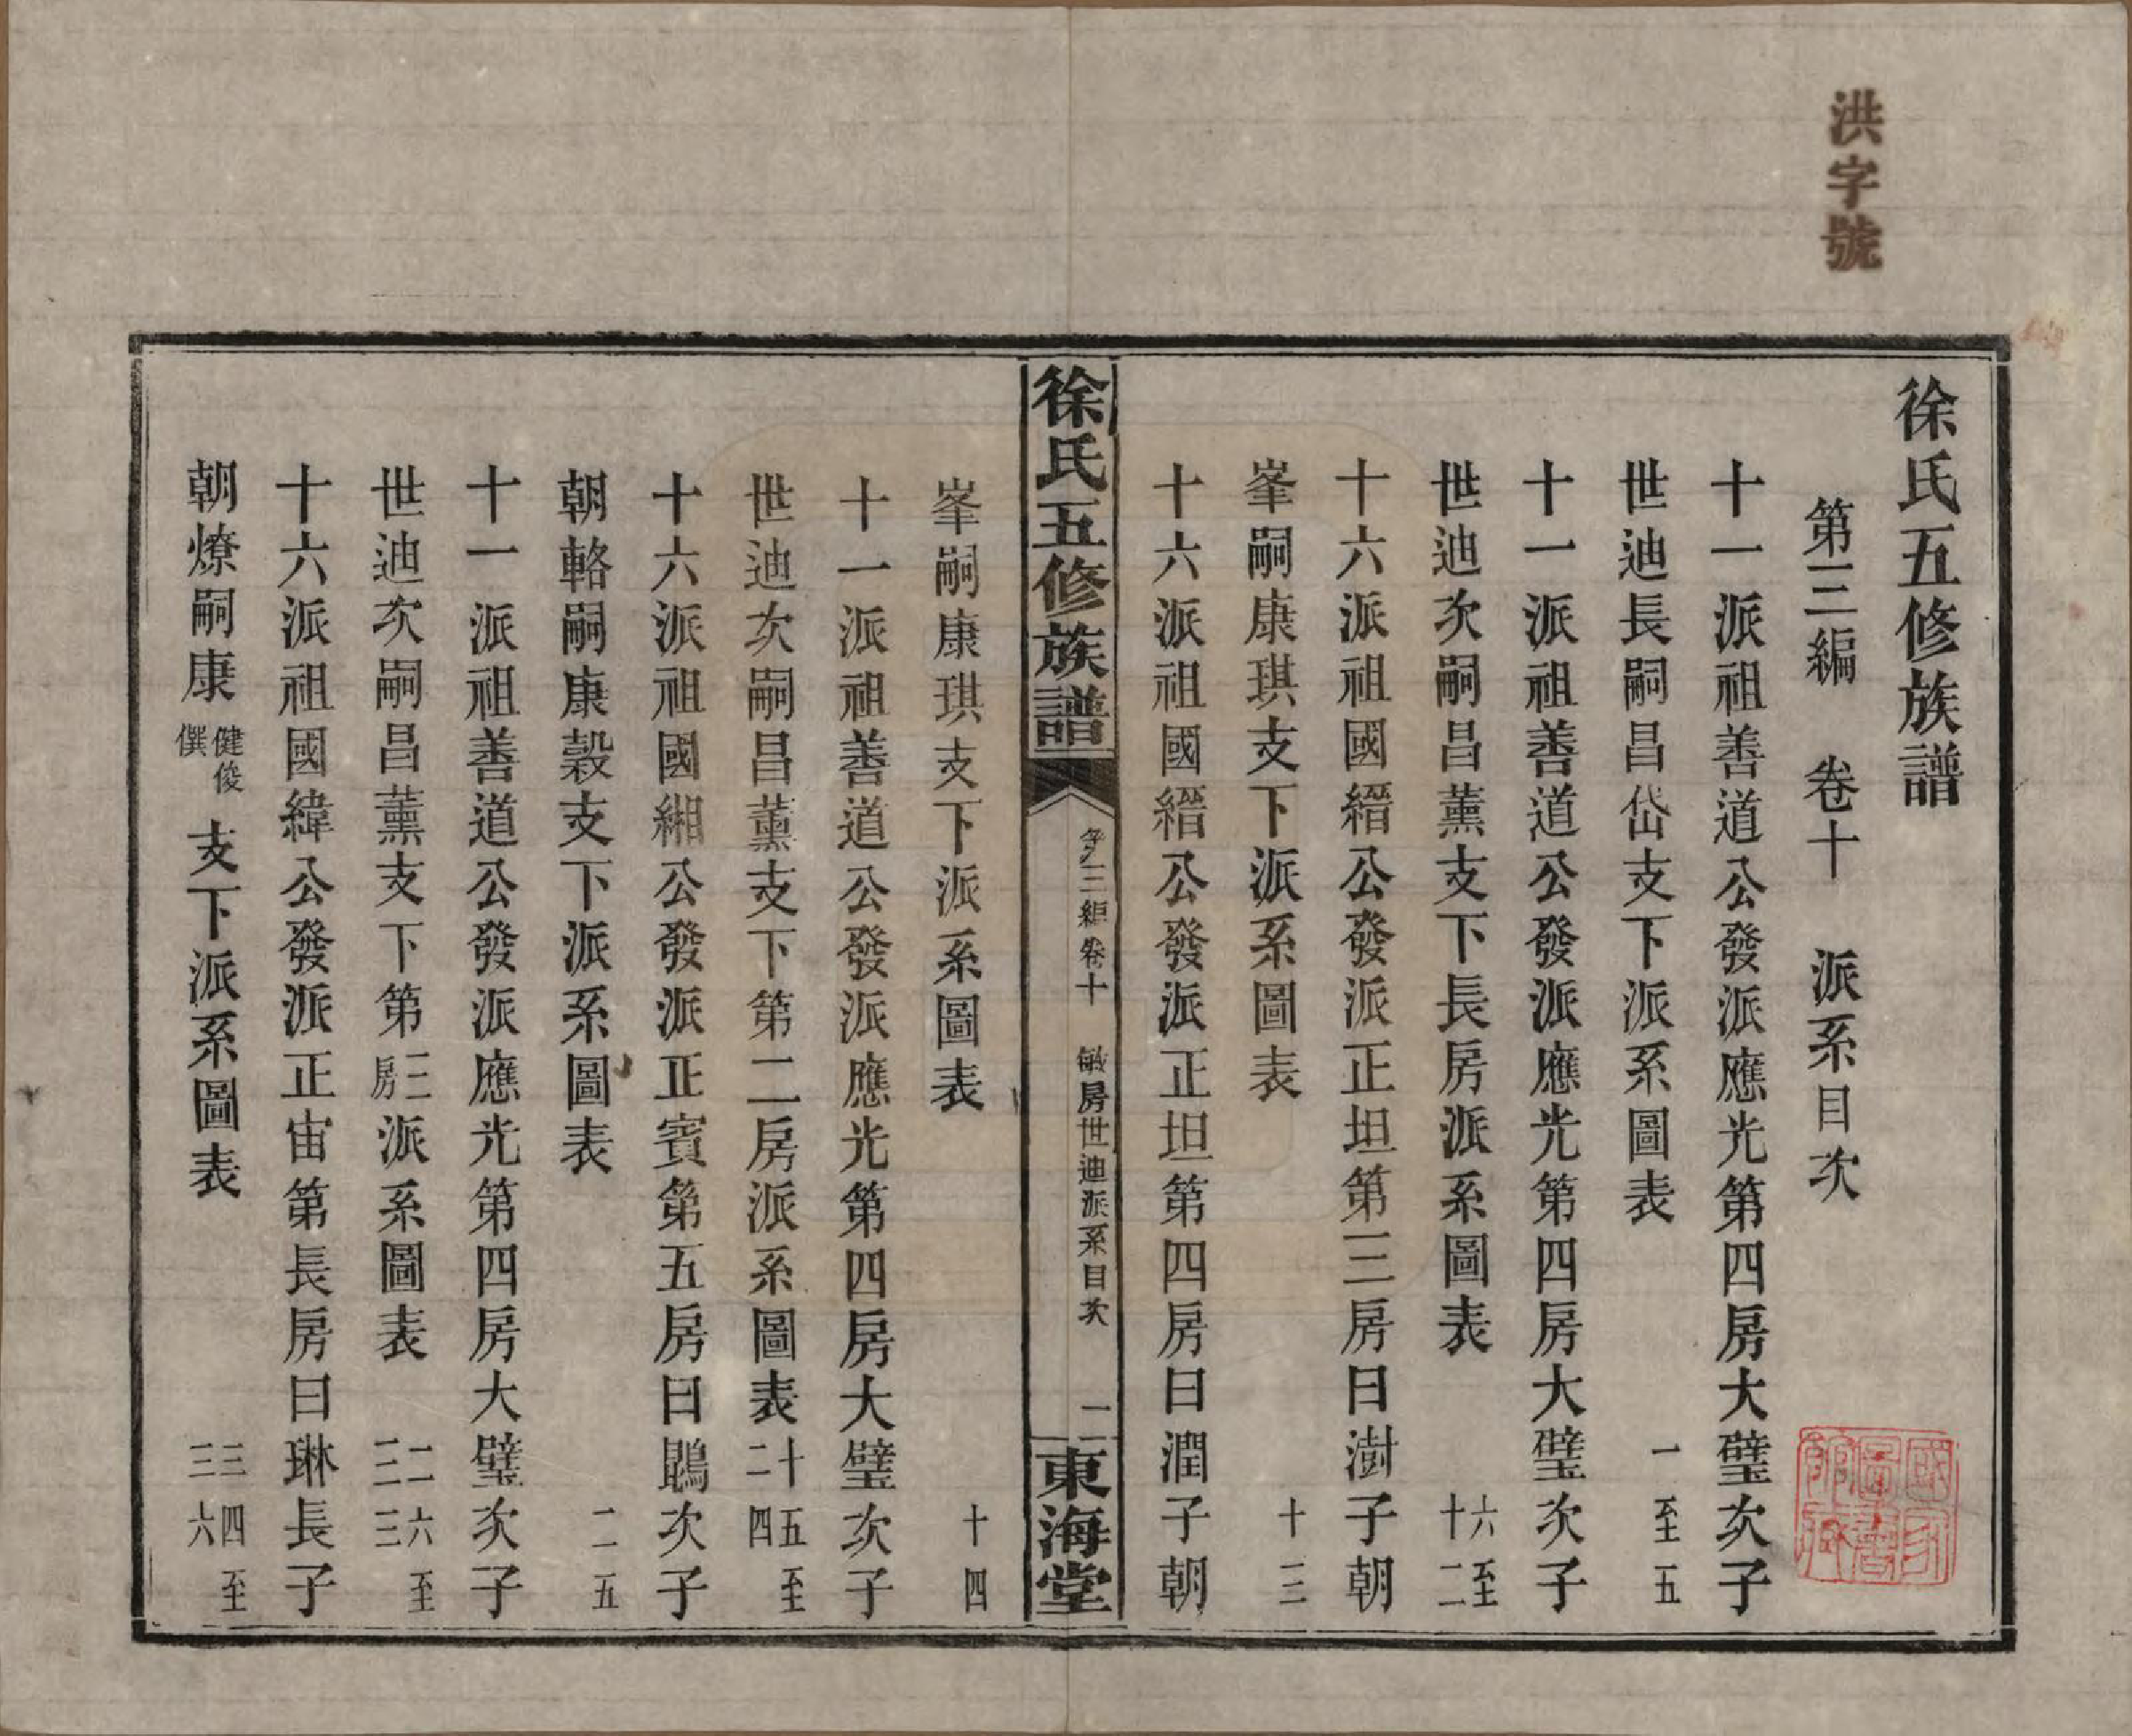 洪字號
徐氏五修族譜
第三編 卷十 派系目次
十一派祖善道公發派應光第四房大璧次子
世迪長嗣昌岱支下派系圖表 一至五
十一派祖善道公發派應光第四房大璧次子
世迪次嗣昌薰支下長房派系圖表 六至十二
十六派祖國縉公發派正坦第三房曰澍子朝
峯嗣康琪支下派系圖表 十三
十六派祖國縉公發派正坦第四房曰潤子朝
徐氏五修族譜 第三編卷十 敏房世迪派系目次 二 東海堂
峯嗣康琪支下派系圖表 十四
十一派祖善道公發派應光第四房大璧次子
世迪次嗣昌薰支下第二房派系圖表 十五至二四
十六派祖國緗公發派正賓第五房曰鵾次子
朝輅嗣康穀支下派系圖表 二五
十一派祖善道公發派應光第四房大璧次子
世迪次嗣昌薰支下第三房派系圖表 二六至三三
十六派祖國緯公發派正宙第長房曰琳長子
朝燎嗣康健俊僎支下派系圖表 三四至三六
國家圖書館藏